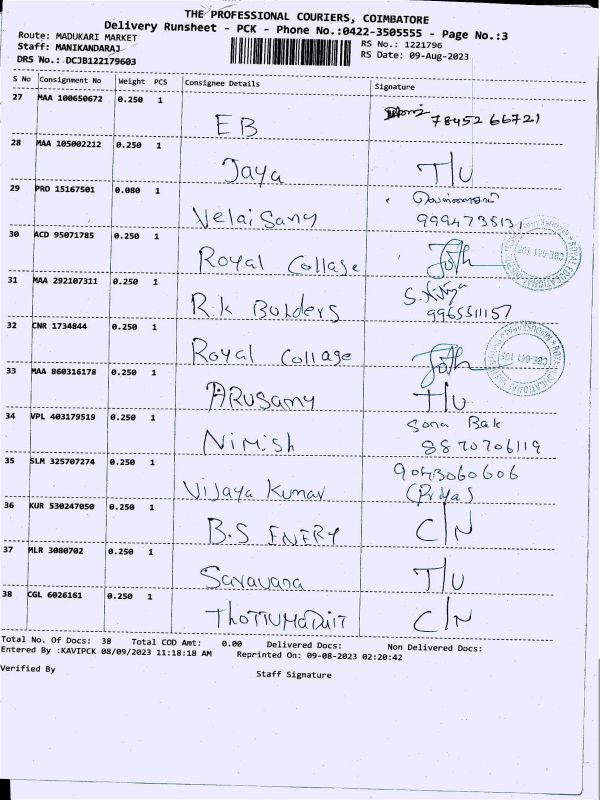 THE PROFESSIONAL COURIERS, COIMBATORE
Delivery Runsheet - PCK - Phone No.:0422-3505555 - Page No.:3
Route: MADUKARI MARKET
RS No.: 1221796
Staff: MANIKANDARAJ
RS Date: 09-Aug-2023
DRS No.: DCJB122179603
S No Consignment No Weight PCS Consignee Details Signature
27 MAA 100650672 0.250 1 EB 78452 66721
28 MAA 105002212 0.250 1 Jaya T/U
29 PRO 15167501 0.080 1 Velaisamy 9994735131
30 ACD 95071785 0.250 1 Royal Collage
31 MAA 292107311 0.250 1 R.k Bulders 9965511157
32 CNR 1734844 0.250 1 Royal Collage
33 MAA 860316178 0.250 1 ARusamy T/U
34 VPL 403179519 0.250 1 Nimish Sona Bak
8870706119
35 SLM 325707274 0.250 1 Vijaya Kumar 9043060606
(Priya)
36 KUR 530247050 0.250 1 B.S ENERY C/N
37 MLR 3080702 0.250 1 Saravana T/U
38 CGL 6026161 0.250 1 C/N
Total No. Of Docs: 38 Total COD Amt: 0.00 Delivered Docs: Non Delivered Docs:
Entered By :KAVIPCK 08/09/2023 11:18:18 AM Reprinted On: 09-08-2023 02:20:42
Verified By
Staff Signature